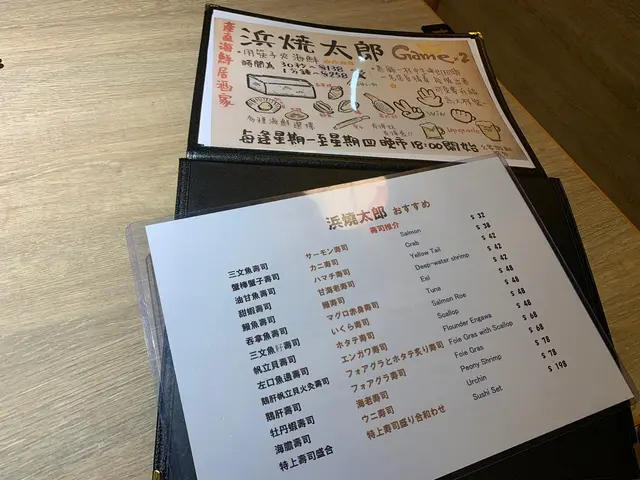 產直海鮮居酒家
浜燒太郎 Game×2
・用筷子夾海鮮
時間為 30秒~$138
1分鐘~$258
多種海鮮選擇
Win
Upgrade
每逢星期一至星期四晚市18:00開始
浜燒太郎 おすすめ
壽司推介
三文魚壽司 サーモン寿司 Salmon $ 32
蟹棒蟹子壽司 カニ寿司 Crab $ 38
油甘魚壽司 ハマチ寿司 Yellow Tail $ 42
甜蝦壽司 甘海老寿司 Deep-water shrimp $ 42
鰻魚壽司 鰻寿司 Eel $ 42
吞拿魚壽司 マグロ赤身寿司 Tuna $ 48
三文魚籽壽司 いくら寿司 Salmon Roe $ 48
帆立貝壽司 ホタテ寿司 Scallop $ 48
左口魚邊壽司 エンガワ寿司 Flounder Engawa $ 48
鵝肝帆立貝火灸壽司 フォアグラとホタテ炙り寿司 Foie Gras with Scallop $ 68
鵝肝壽司 フォアグラ寿司 Foie Gras $ 68
牡丹蝦壽司 海老寿司 Peony Shrimp $ 78
海膽壽司 ウニ寿司 Urchin $ 78
特上壽司盛合 特上寿司盛り合わせ Sushi Set $ 198